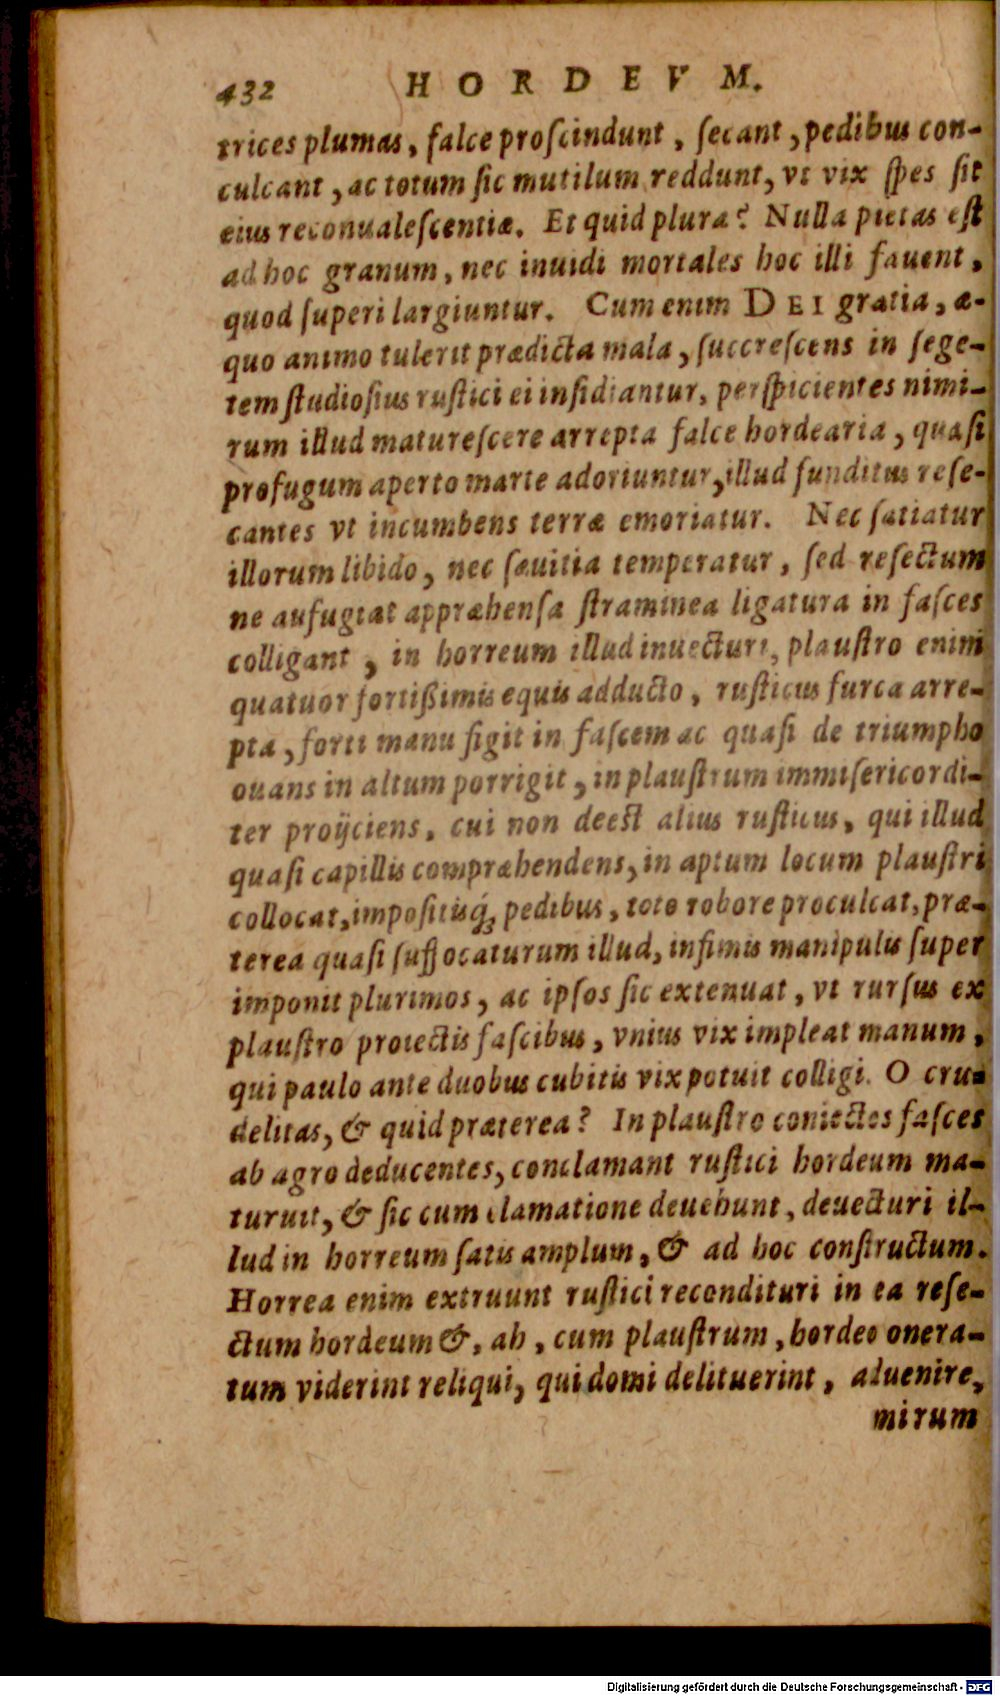 432 HORDEVM.
trices plumas, falce proſcindunt, ſecant, pedibus con-
culcant, ac totum ſic mutilum reddunt, vt vix ſpes ſit
eius reconualeſcentiæ. Et quid plura? Nulla pietas eſt
ad hoc granum, nec inuidi mortales hoc illi fauent,
quod ſuperi largiuntur. Cum enim DEI gratia, æ-
quo animo tulerit prædicta mala, ſuccreſcens in ſege-
tem ſtudioſius ruſtici ei inſidiantur, perſpicientes nimi-
rum illud matureſcere arrepta falce hordearia, quaſi
profugum aperto marte adoriuntur, illud funditus reſe-
cantes vt incumbens terræ emoriatur. Nec ſatiatur
illorum libido, nec ſæuitia temperatur, ſed reſectum
ne aufugiat appræhenſa ſtraminea ligatura in faſces
colligant, in horreum illud inuecturi, plauſtro enim
quatuor fortißimis equis adducto, ruſticus furca arre-
pta, forti manu figit in faſcem ac quaſi de triumpho
ouans in altum porrigit, in plauſtrum immiſericordi-
ter proijciens, cui non deeſt alius ruſticus, qui illud
quaſi capillis compræhendens, in aptum locum plauſtri
collocat, impoſitisq́; pedibus, toto robore proculcat, præ-
terea quaſi ſuffocaturum illud, infimis manipulis ſuper
imponit plurimos, ac ipſos ſic extenuat, vt rurſus ex
plauſtro proiectis faſcibus, vnius vix impleat manum,
qui paulo ante duobus cubitis vix potuit colligi. O cru-
delitas, & quid præterea? In plauſtro coniectos faſces
ab agro deducentes, conclamant ruſtici hordeum ma-
turuit, & ſic cum clamatione deuehunt, deuecturi il-
lud in horreum ſatis amplum, & ad hoc conſtructum.
Horrea enim extruunt ruſtici recondituri in ea reſe-
ctum hordeum &, ah, cum plauſtrum, hordeo onera-
tum viderint reliqui, qui domi delituerint, aduenire,
mirum
Digitalisierung gefördert durch die Deutsche Forschungsgemeinschaft - DFG